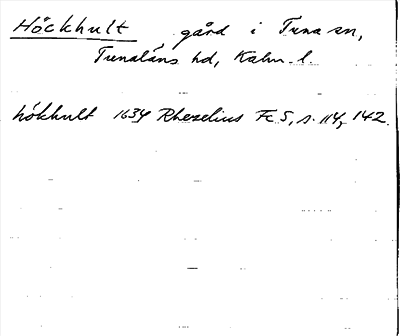 Höckhult gård i Tuna sn,
Tunaläns hd, Kalm. l.
hökhult 1634 Rhezelius Fc 5, s. 114, 142.